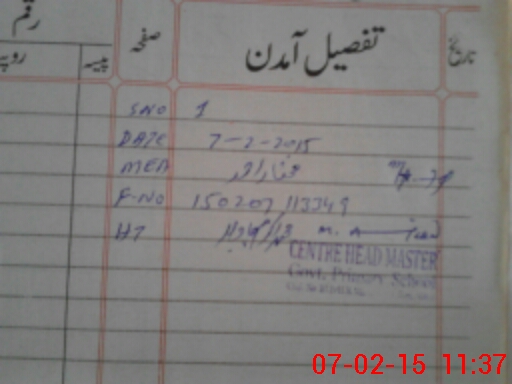 رقم
صفحہ
تفصیل آمدن
تاریخ
روپیہ
پیسہ
SNO 1
DATE 7-2-2015
MEA
F-NO 150207/113349
HT
CENTRE HEAD MASTER
Govt. Primary School
07-02-15 11:37